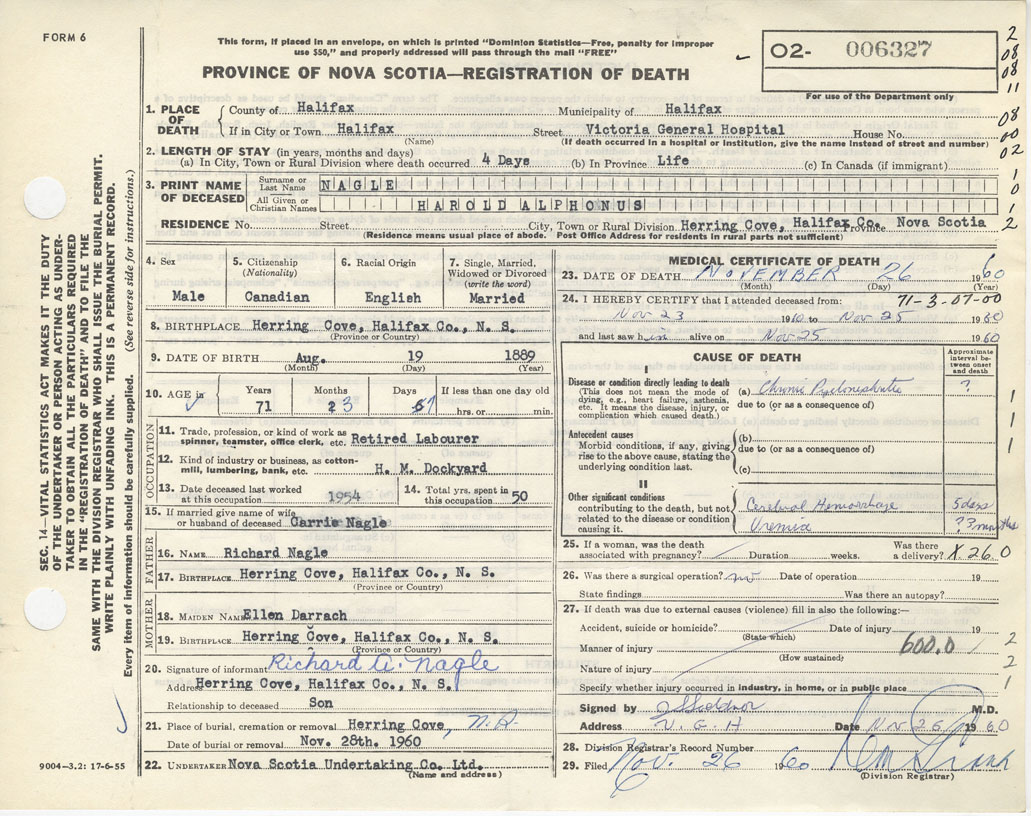 FORM 6
This form, if placed in an envelope, on which is printed "Dominion Statistics—Free, penalty for improper
use $50," and properly addressed will pass through the mail "FREE"
PROVINCE OF NOVA SCOTIA—REGISTRATION OF DEATH
02- 006327
For use of the Department only
2
08
08
11
08
00
02
1
0
1
2
1. PLACE OF DEATH
County of Halifax Municipality of Halifax
If in City or Town Halifax Street Victoria General Hospital House No.
(Name) (If death occurred in a hospital or institution, give the name instead of street and number)
2. LENGTH OF STAY (in years, months and days)
(a) In City, Town or Rural Division where death occurred 4 Days (b) In Province Life (c) In Canada (if immigrant)
3. PRINT NAME OF DECEASED
Surname or Last Name NAGLE
All Given or Christian Names HAROLD ALPHONUS
RESIDENCE No. Street City, Town or Rural Division Herring Cove, Halifax Co. Province Nova Scotia
(Residence means usual place of abode. Post Office Address for residents in rural parts not sufficient)
4. Sex
Male
5. Citizenship
(Nationality)
Canadian
6. Racial Origin
English
7. Single, Married,
Widowed or Divorced
(write the word)
Married
8. BIRTHPLACE Herring Cove, Halifax Co., N. S.
(Province or Country)
9. DATE OF BIRTH Aug. 19 1889
(Month) (Day) (Year)
10. AGE in
Years 71
Months 3
Days 7
If less than one day old
hrs. or min.
OCCUPATION
11. Trade, profession, or kind of work as
spinner, teamster, office clerk, etc. Retired Labourer
12. Kind of industry or business, as cotton-
mill, lumbering, bank, etc. H. M. Dockyard
13. Date deceased last worked
at this occupation 1954
14. Total yrs. spent in
this occupation 50
15. If married give name of wife
or husband of deceased Carrie Nagle
FATHER
16. NAME Richard Nagle
17. BIRTHPLACE Herring Cove, Halifax Co., N. S.
(Province or Country)
MOTHER
18. MAIDEN NAME Ellen Darrach
19. BIRTHPLACE Herring Cove, Halifax Co., N. S.
(Province or Country)
20. Signature of informant Richard A. Nagle
Address Herring Cove, Halifax Co., N. S.
Relationship to deceased Son
21. Place of burial, cremation or removal Herring Cove,
Date of burial or removal Nov. 28th. 1960
22. UNDERTAKER Nova Scotia Undertaking Co. Ltd.
(Name and address)
MEDICAL CERTIFICATE OF DEATH
23. DATE OF DEATH NOVEMBER 26 1960
(Month) (Day) (Year)
24. I HEREBY CERTIFY that I attended deceased from: 71-3-07-00
Nov 23 1960 to Nov 25 1960
and last saw him alive on Nov 25 1960
CAUSE OF DEATH
Approximate
interval be-
tween onset
and death
I
Disease or condition directly leading to death
(This does not mean the mode of
dying, e.g., heart failure, asthenia,
etc. It means the disease, injury, or
complication which caused death.)
(a) Chronic Pyelonephritis ?
due to (or as a consequence of)
Antecedent causes
Morbid conditions, if any, giving
rise to the above cause, stating the
underlying condition last.
(b)
due to (or as a consequence of)
(c)
1
1
1
II
Other significant conditions
contributing to the death, but not
related to the disease or condition
causing it.
Cerebral Hemorrhage 5 days
Uremia ? months
25. If a woman, was the death
associated with pregnancy? Duration weeks.
Was there
a delivery? X.26.0
26. Was there a surgical operation? no Date of operation 19
State findings Was there an autopsy?
27. If death was due to external causes (violence) fill in also the following:—
Accident, suicide or homicide? Date of injury 19
(State which)
Manner of injury 600.0
(How sustained)
Nature of injury
Specify whether injury occurred in industry, in home, or in public place
2
2
1
Signed by M.D.
Address V. G. H Date Nov 26 1960
28. Division Registrar's Record Number
29. Filed Nov. 26 1960
(Division Registrar)
SEC. 14—VITAL STATISTICS ACT MAKES IT THE DUTY
OF THE UNDERTAKER OR PERSON ACTING AS UNDER-
TAKER TO OBTAIN ALL THE PARTICULARS REQUIRED
IN THE "REGISTRATION OF DEATH" AND TO FILE THE
SAME WITH THE DIVISION REGISTRAR WHO SHALL ISSUE THE BURIAL PERMIT.
WRITE PLAINLY WITH UNFADING INK. THIS IS A PERMANENT RECORD.
Every item of information should be carefully supplied. (See reverse side for instructions.)
9004—3.2: 17-6-55